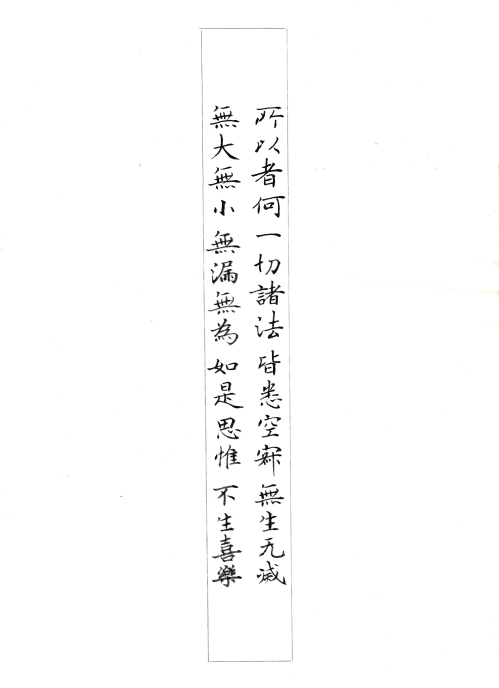 所以者何一切諸法皆悉空寂無生无滅
無大無小無漏無為如是思惟不生喜樂